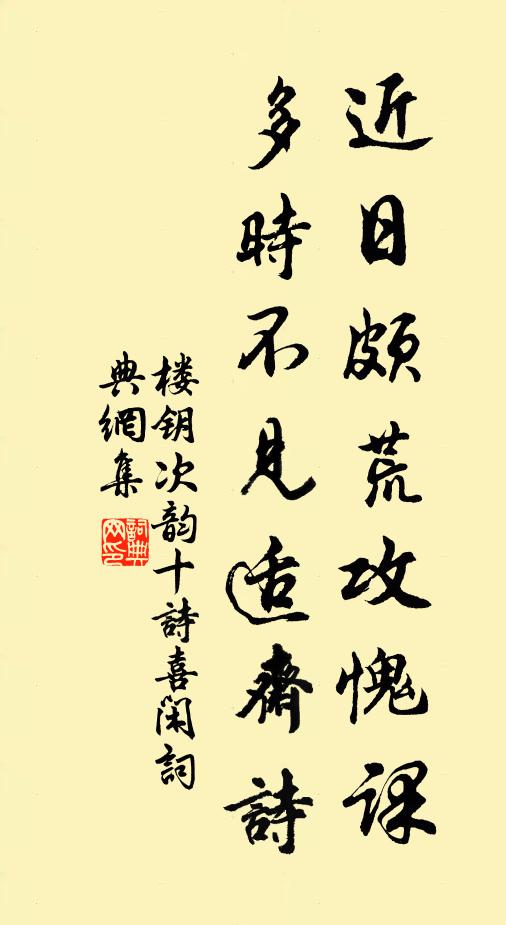 近日頗荒攻愧課
多時不見适齋詩
楼钥次韵十詩喜閑詞
典網集
詞典
网印